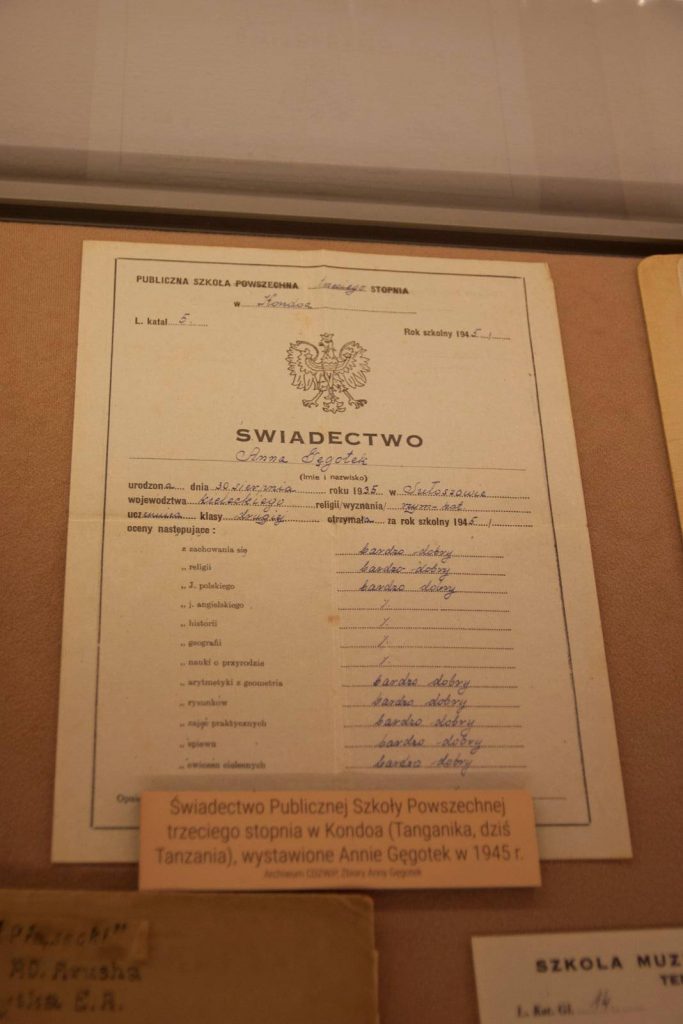 PUBLICZNA SZKOŁA POWSZECHNA trzeciego STOPNIA
w Kondoa
L. katal 5.
Rok szkolny 1945/
ŚWIADECTWO
Anna Gęgotek
(Imię i nazwisko)
urodzona dnia 30 sierpnia roku 1935 w Sułoszowie
województwa kieleckiego religii/wyznania/ rzym-kat.
uczennica klasy drugiej otrzymała za rok szkolny 1945/
oceny następujące :
z zachowania się bardzo dobry
„ religii bardzo dobry
„ J. polskiego bardzo dobry
„ j. angielskiego /.
„ historii /.
„ geografii /.
„ nauki o przyrodzie /.
„ arytmetyki z geometria bardzo dobry
„ rysunków bardzo dobry
„ zajęć praktycznych bardzo dobry
„ śpiewu bardzo dobry
„ ćwiczeń cielesnych bardzo dobry
Świadectwo Publicznej Szkoły Powszechnej
trzeciego stopnia w Kondoa (Tanganika, dziś
Tanzania), wystawione Annie Gęgotek w 1945 r.
Archiwum CDZWiP, Zbiory Anny Gęgotek
Arusha
E.A.
SZKOŁA MUZ
L. Kat. Gł. 14.